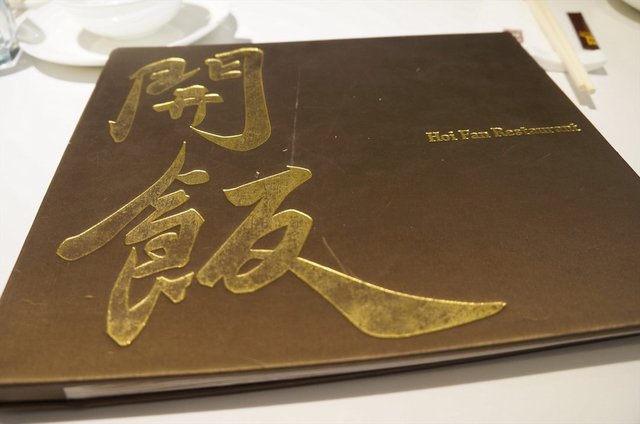 開飯
Hoi Fan Restaurant